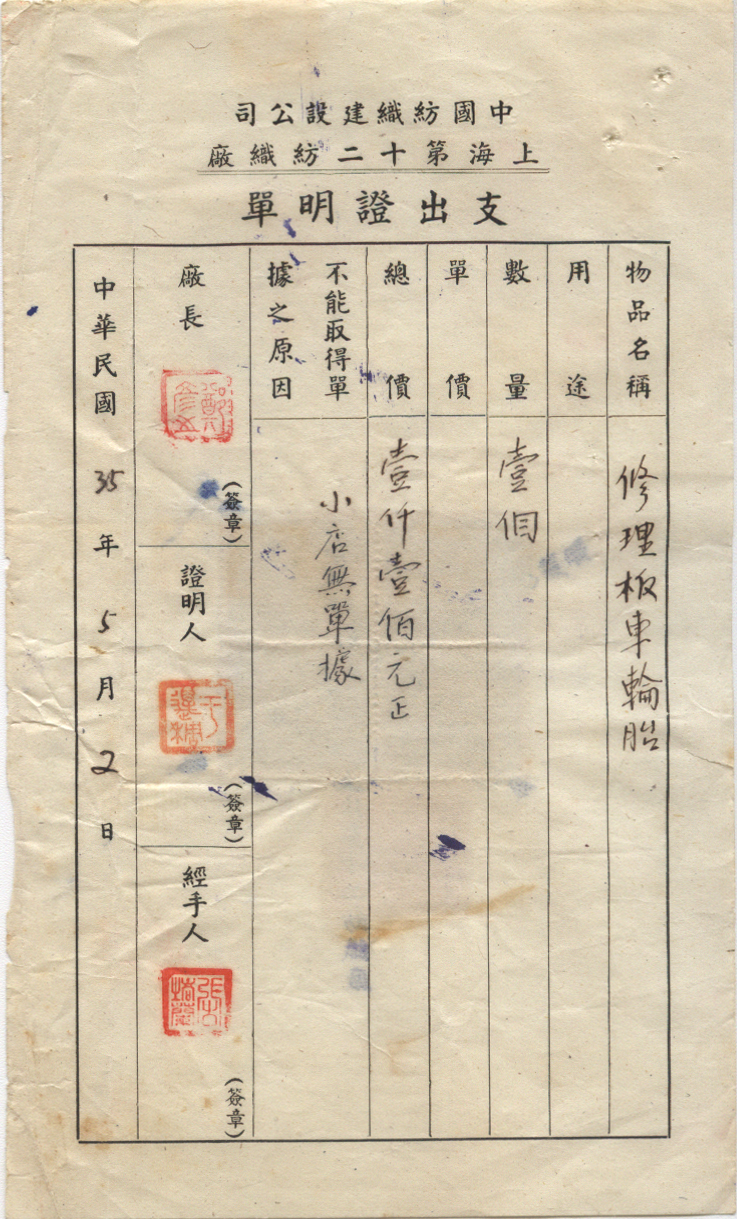 中國紡織建設公司
上海第十二紡織廠
支出證明單
物品名稱
修理板車輪胎
用途
數量
壹個
單價
總價
壹仟壹佰元正
不能取得單
據之原因
小店無單據
廠長
(簽章)
證明人
(簽章)
經手人
(簽章)
中華民國35年5月2日